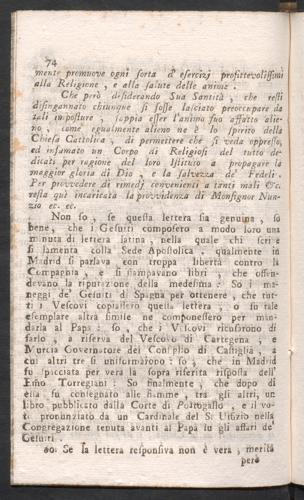 74
mente promuove ogni sorta d' esercizj profittevolissimi
alla Religione, e alla salute delle anime.
Che però desiderando Sua Santità, che resti
disingannato chiunque si fosse lasciato preoccupare da
tali imposture, sappia esser l'animo suo affatto alie-
no, come egualmente alieno ne è lo spirito della
Chiesa Cattolica, di permettere che si veda oppresso,
ed infamato un Corpo di Religiosi del tutto de-
dicati per ragione del loro Istituto a propagare la
maggior gloria di Dio, e la salvezza de' Fedeli.
Per provvedere di rimedj convenienti a tanti mali &c.
resta quì incaricata la provvidenza di Monsignor Nun-
zio ec. ec.
Non so, se questa lettera sia genuina, so
bene, che i Gesuiti composero a modo loro una
minuta di lettera latina, nella quale chi scri e
si lamenta colla Sede Apostolica, qualmente in
Madrid si parlava con troppa libertà contro la
Compagnia, e si stampavano libri, che offen-
devano la riputazione della medesima: So i ma-
neggi de' Gesuiti di Spagna per ottenere, che tut-
ti i Vescovi copiassero quella lettera, o su tale
esemplare altra simile ne componessero per man-
darla al Papa: so, che i Vescovi ricusorono di
farlo, a riserva del Vescovo di Cartegena, e
Murcia Governatore del Consiglio di Castiglia, a
cui altri tre si uniformarono: so, che in Madrid
fu spicciata per vera la sopra riferita risposta dell'
Emo Torregiani: So finalmente, che dopo di
essa fu consegnato alle fiamme, tra gli altri, un
libro pubblicato dalla Corte di Portogallo, e il vo-
to pronunziato da un Cardinale del S. Ufizio nella
Congregazione tenuta avanti al Papa su gli affari de'
Gesuiti.
80. Se la lettera responsiva non è vera, merita
però